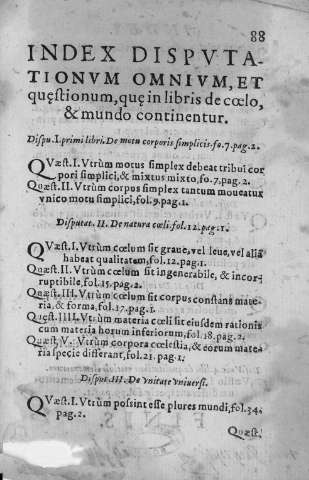 88
INDEX DISPVTA-
TIONVM OMNIVM, ET
quęstionum, quę in libris de cœlo,
& mundo continentur.
Dispu. I. primi libri. De motu corporis simplicis. fo. 7. pag. 2.
QVæst. I. Vtrùm motus simplex debeat tribui cor
pori simplici, & mixtus mixto, fo. 7. pag. 2.
Quæst. II. Vtrùm corpus simplex tantum moueatur
vnico motu simplici, fol. 9. pag. 1.
Disputat. II. De natura cœli. fol. 12. pag. 1.
QVæst. I. Vtrùm cœlum sit graue, vel leue, vel aliã
habeat qualitatem, fol. 12. pag. 1.
Quæst. II. Vtrùm cœlum sit ingenerabile, & incor-
ruptibile, fol. 15. pag. 2.
Quæst. III. Vtrùm cœlum sit corpus constans mate-
ria, & forma, fol. 17. pag. 1.
Quęst. IIII. Vtrùm materia cœli sit eiusdem rationis
cum materia horum inferiorum, fol. 18. pag. 2.
Quæst. V. Vtrùm corpora cœlestia, & eorum mate-
ria specie differant, fol. 21. pag. 1.
Disput. III. De vnitate vniuersi.
QVæst. I. Vtrùm possint esse plures mundi, fol. 34.
pag. 2.
Quæst.